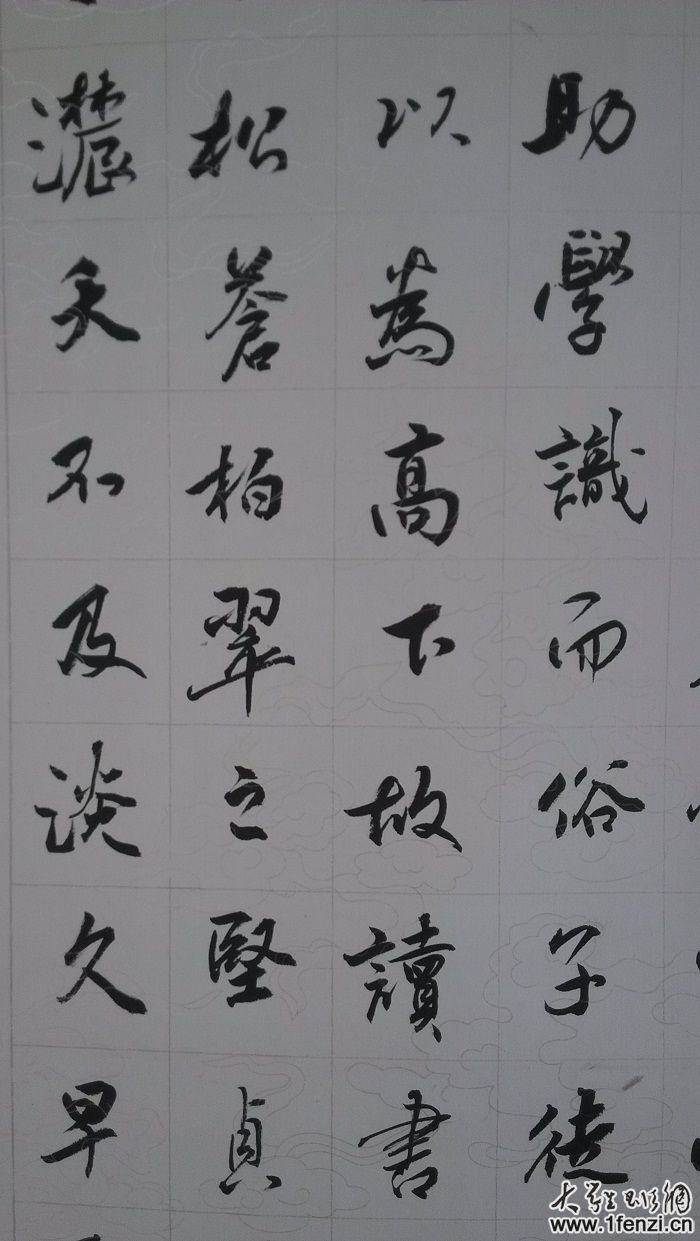 助學識而俗子徒
以為高下故讀書
松蒼柏翠之堅貞
濃夭不及淡久早
www.1fenzi.cn